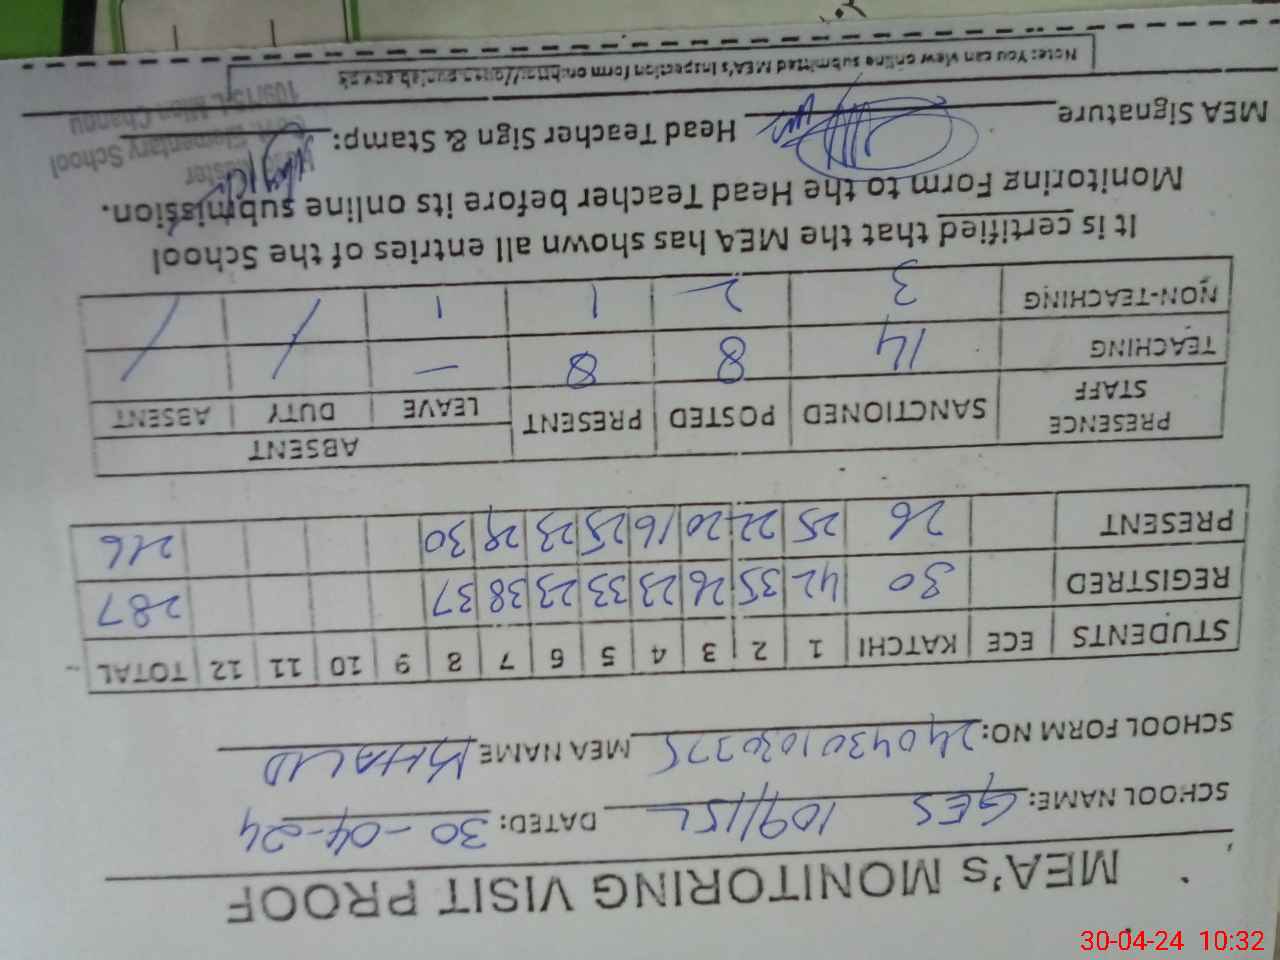 MEA's MONITORING VISIT PROOF
SCHOOL NAME: GES 109/15L DATED: 30-04-24
SCHOOL FORM NO: MEA NAME KHALID
STUDENTS ECE KATCHI 1 2 3 4 5 6 7 8 9 10 11 12 TOTAL
REGISTRED 30 42 35 26 23 33 23 38 37 287
PRESENT 26 25 22 20 16 25 23 30 216
PRESENCE STAFF SANCTIONED POSTED PRESENT ABSENT
LEAVE DUTY ABSENT
TEACHING 14 8 8 — / /
NON-TEACHING 3 2 1 1 / /
It is certified that the MEA has shown all entries of the School
Monitoring Form to the Head Teacher before its online submission.
MEA Signature Head Teacher Sign & Stamp:
Elementary School
109/15-L Mian Channu
Note: You can view online submitted MEA's Inspection form on:
30-04-24 10:32